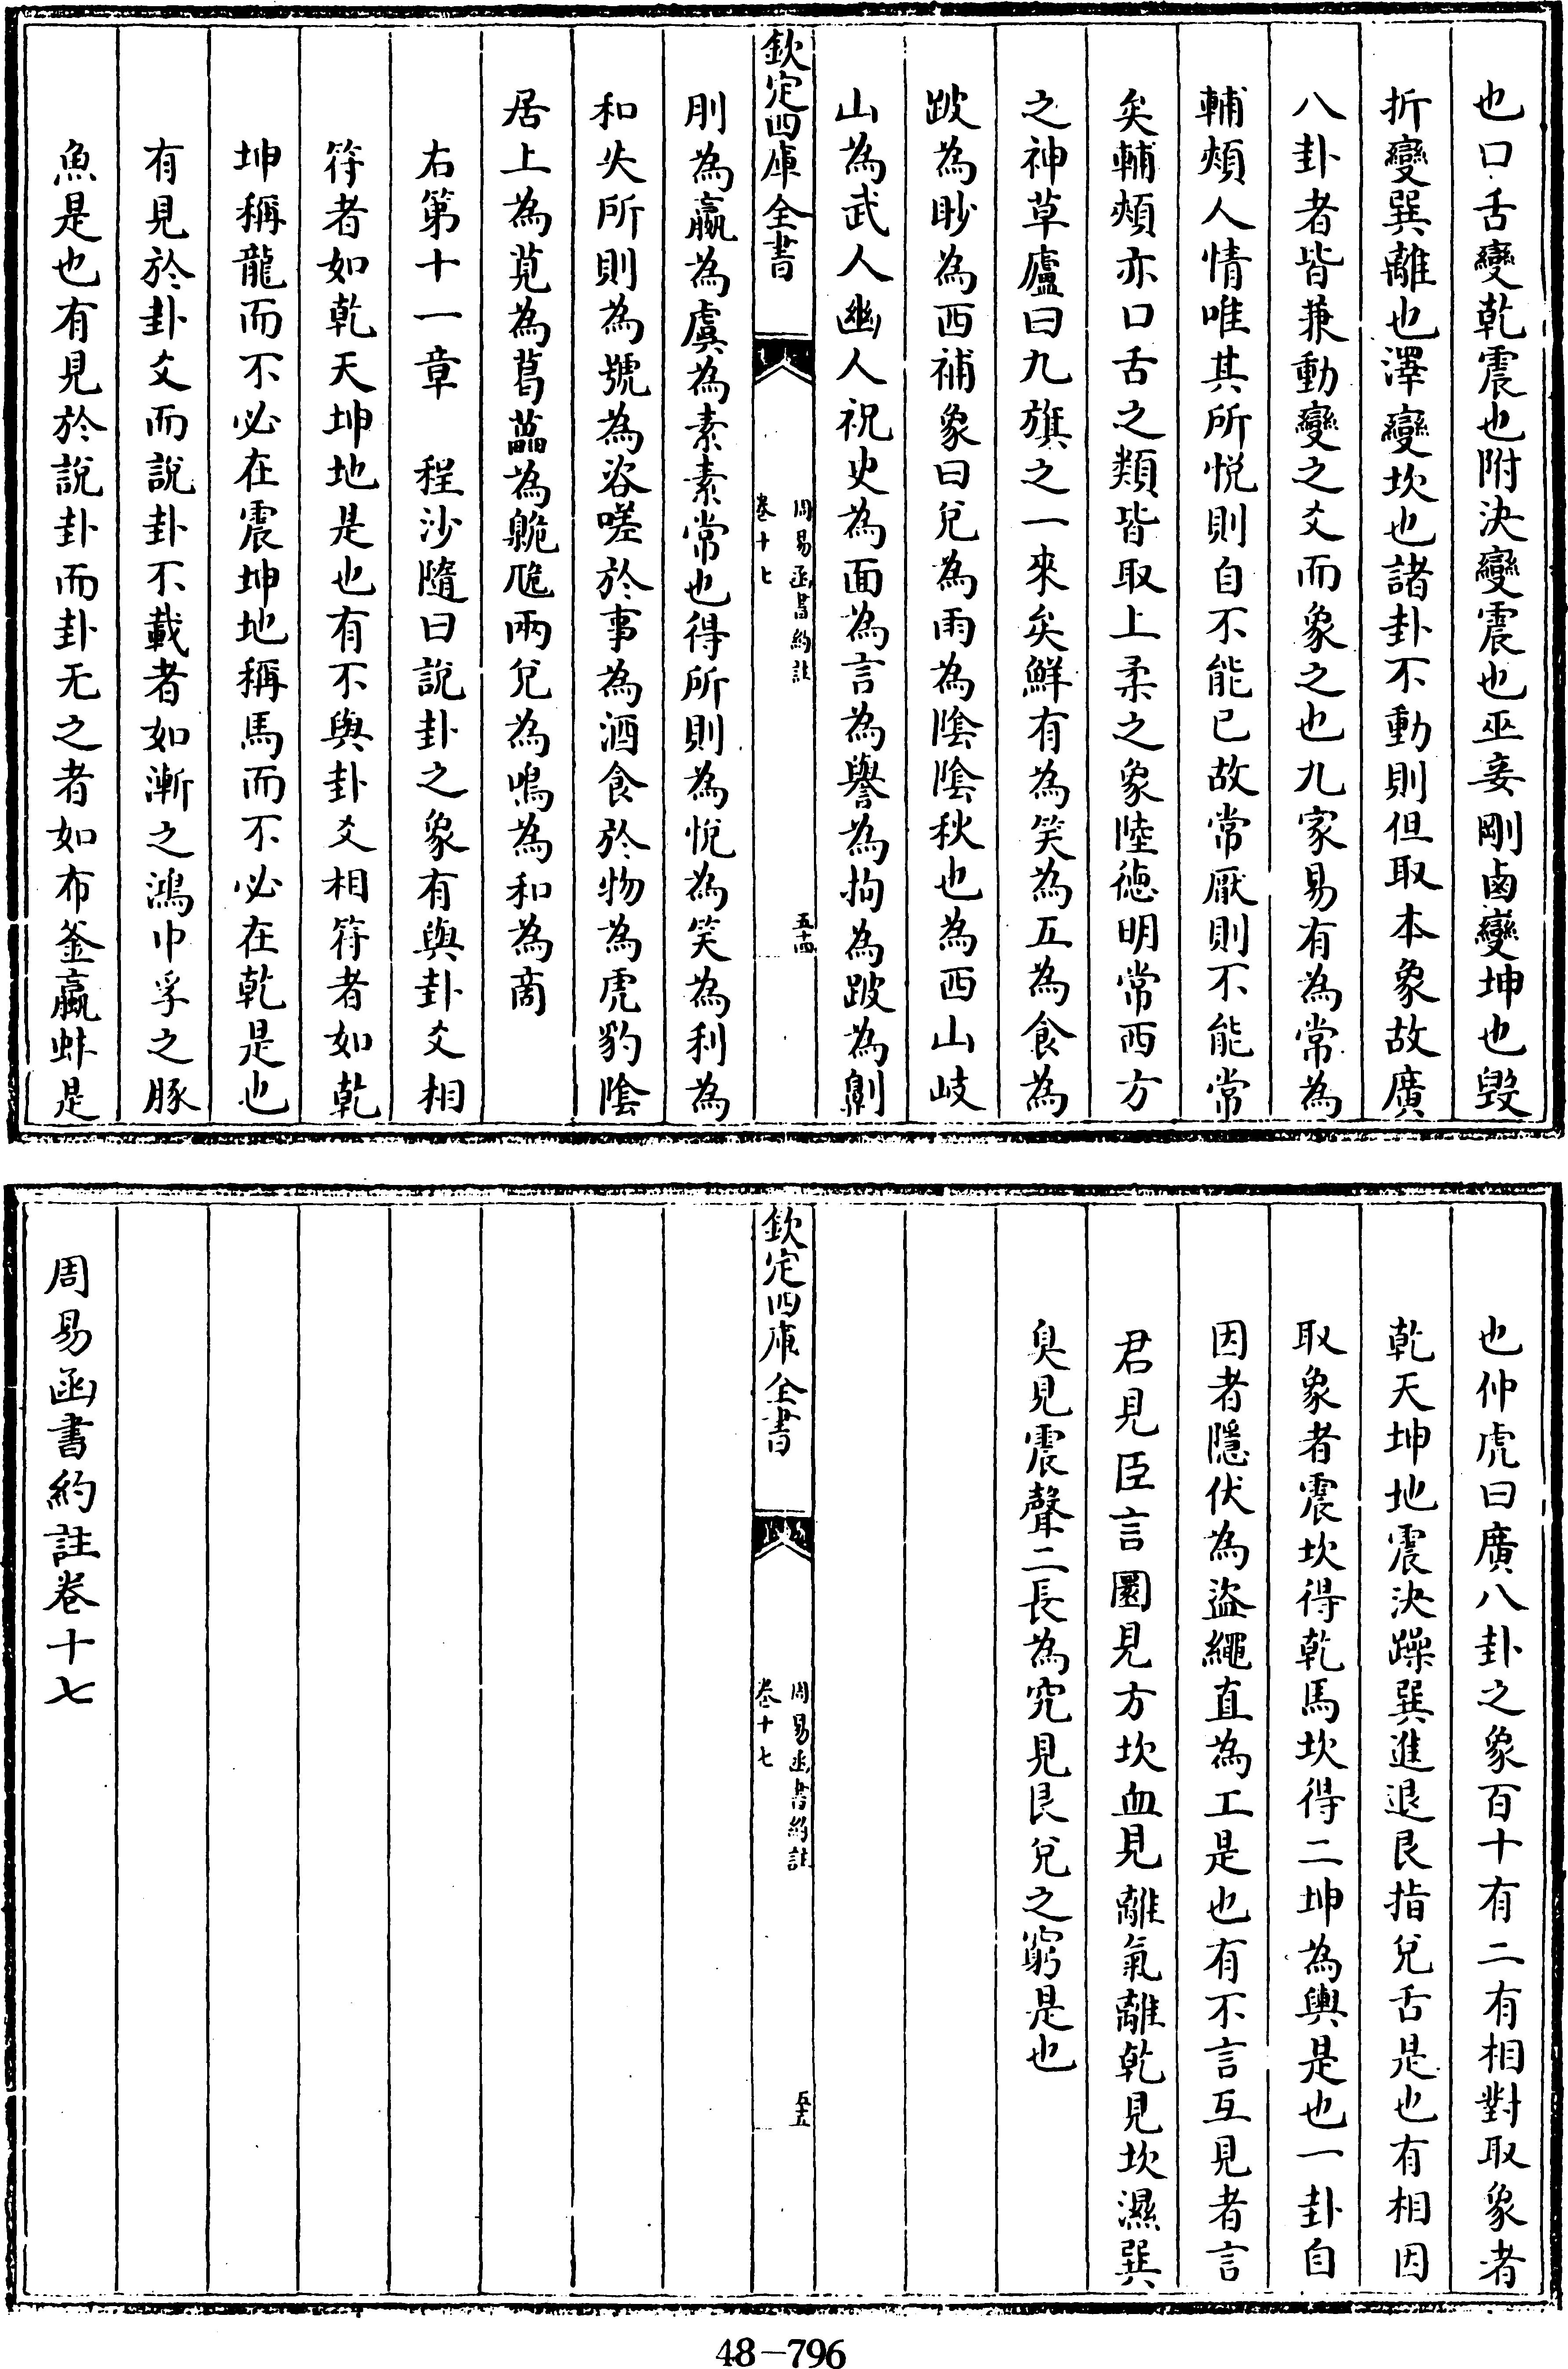 也口舌變乾震也附決變震也巫妾剛鹵變坤也毀
折變巽離也澤變坎也諸卦不動則但取本象故廣
八卦者皆兼動變之爻而象之也九家易有為常為
輔頰人情唯其所悅則自不能已故常厭則不能常
矣輔頰亦口舌之類皆取上柔之象陸德明常西方
之神草廬曰九旗之一來矣鮮有為笑為五為食為
跛為眇為西補象曰兌為雨為陰陰秋也為西山岐
山為武人幽人祝史為面為言為譽為拘為跛為劓
欽定四庫全書
周易函書約註
卷十七
五十四
刖為羸為虞為素素常也得所則為悅為笑為利為
和失所則為號為咨嗟於事為酒食於物為虎豹陰
居上為莧為葛藟為臲卼兩兌為鳴為和為商
右第十一章　程沙隨曰說卦之象有與卦爻相
符者如乾天坤地是也有不與卦爻相符者如乾
坤稱龍而不必在震坤地稱馬而不必在乾是也
有見於卦爻而說卦不載者如漸之鴻中孚之豚
魚是也有見於說卦而卦无之者如布釜蠃蚌是
也仲虎曰廣八卦之象百十有二有相對取象者
乾天坤地震決躁巽進退艮指兌舌是也有相因
取象者震坎得乾馬坎得二坤為輿是也一卦自
因者隱伏為盜繩直為工是也有不言互見者言
君見臣言圜見方坎血見離氣離乾見坎濕巽
臭見震聲二長為究見艮兌之窮是也
欽定四庫全書
周易函書約註
卷十七
五十五
周易函書約註卷十七
48-796